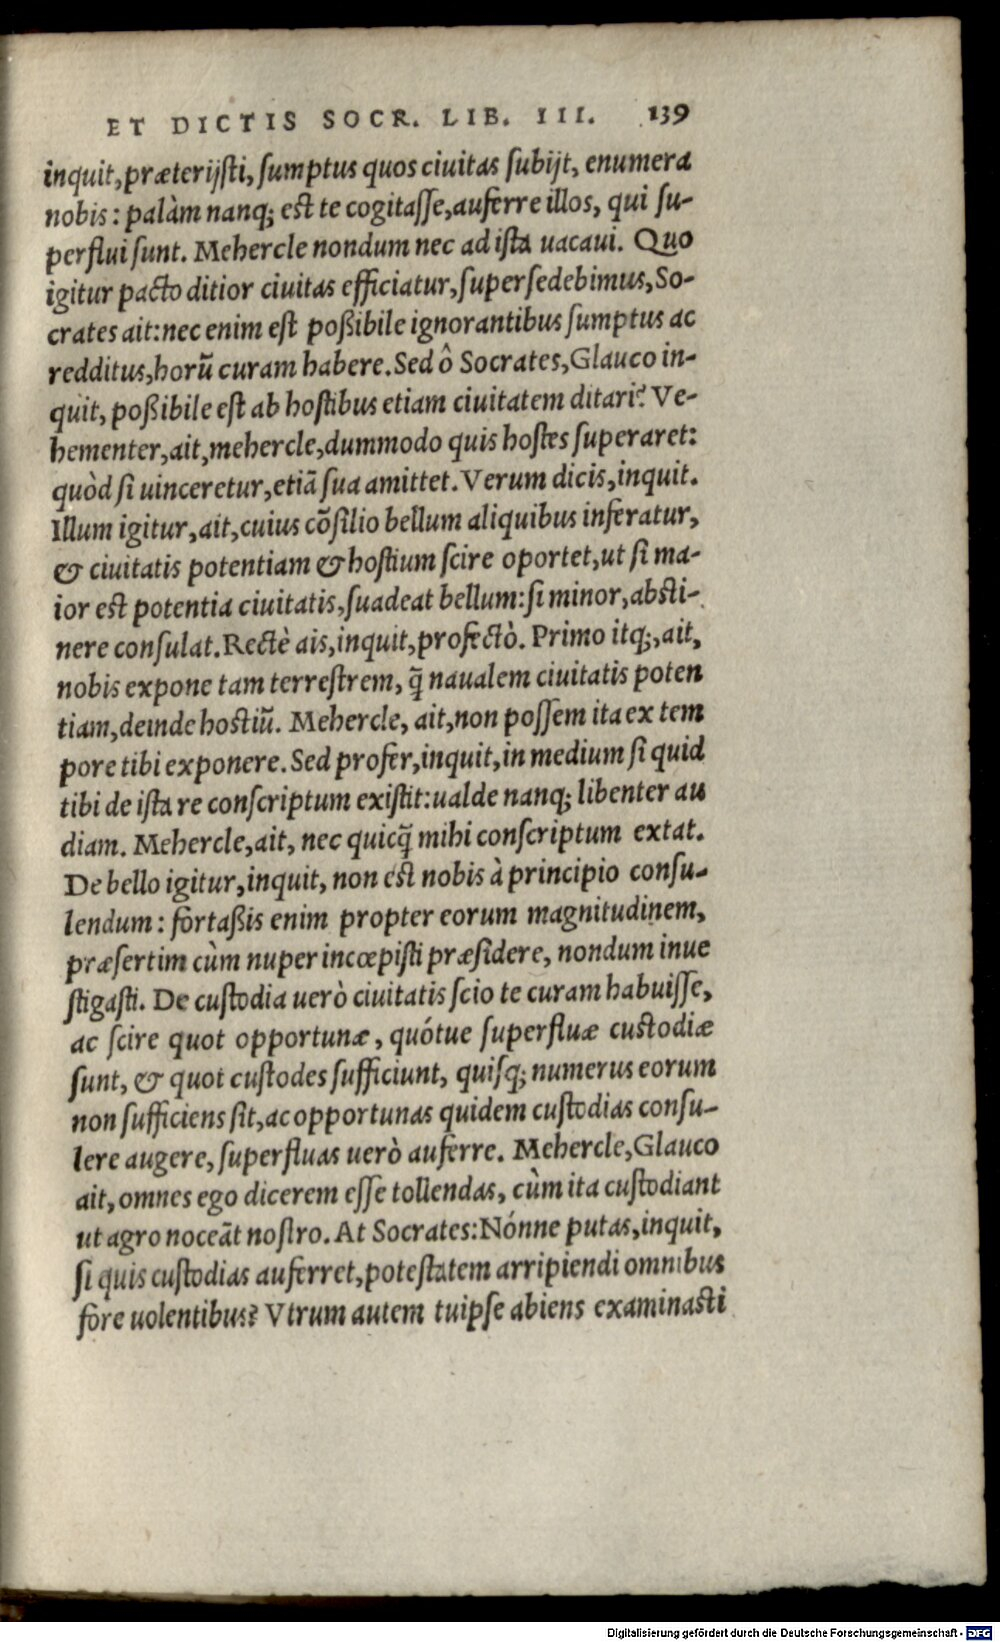 ET DICTIS SOCR. LIB. III. 139
inquit, præterijsti, sumptus quos ciuitas subijt, enumera
nobis: palàm nanq; est te cogitasse, auferre illos, qui su-
perflui sunt. Mehercle nondum nec ad ista uacaui. Quo
igitur pacto ditior ciuitas efficiatur, supersedebimus, So-
crates ait: nec enim est poßibile ignorantibus sumptus ac
redditus, horũ curam habere. Sed ô Socrates, Glauco in-
quit, poßibile est ab hostibus etiam ciuitatem ditari? Ve-
hementer, ait, mehercle, dummodo quis hostes superaret:
quòd si uinceretur, etiã sua amittet. Verum dicis, inquit.
Illum igitur, ait, cuius cõsilio bellum aliquibus inferatur,
& ciuitatis potentiam & hostium scire oportet, ut si ma-
ior est potentia ciuitatis, suadeat bellum: si minor, absti-
nere consulat. Rectè ais, inquit, profectò. Primo itq;, ait,
nobis expone tam terrestrem, q̃ naualem ciuitatis poten
tiam, deinde hostiũ. Mehercle, ait, non possem ita ex tem
pore tibi exponere. Sed profer, inquit, in medium si quid
tibi de ista re conscriptum existit: ualde nanq; libenter au
diam. Mehercle, ait, nec quicq̃ mihi conscriptum extat.
De bello igitur, inquit, non est nobis à principio consu-
lendum: fortaßis enim propter eorum magnitudinem,
præsertim cùm nuper incœpisti præsidere, nondum inue
stigasti. De custodia uerò ciuitatis scio te curam habuisse,
ac scire quot opportunæ, quótue superfluæ custodiæ
sunt, & quot custodes sufficiunt, quisq; numerus eorum
non sufficiens sit, ac opportunas quidem custodias consu-
lere augere, superfluas uerò auferre. Mehercle, Glauco
ait, omnes ego dicerem esse tollendas, cùm ita custodiant
ut agro noceãt nostro. At Socrates: Nónne putas, inquit,
si quis custodias auferret, potestatem arripiendi omnibus
fore uolentibus? Vtrum autem tuipse abiens examinasti
Digitalisierung gefördert durch die Deutsche Forschungsgemeinschaft - DFG